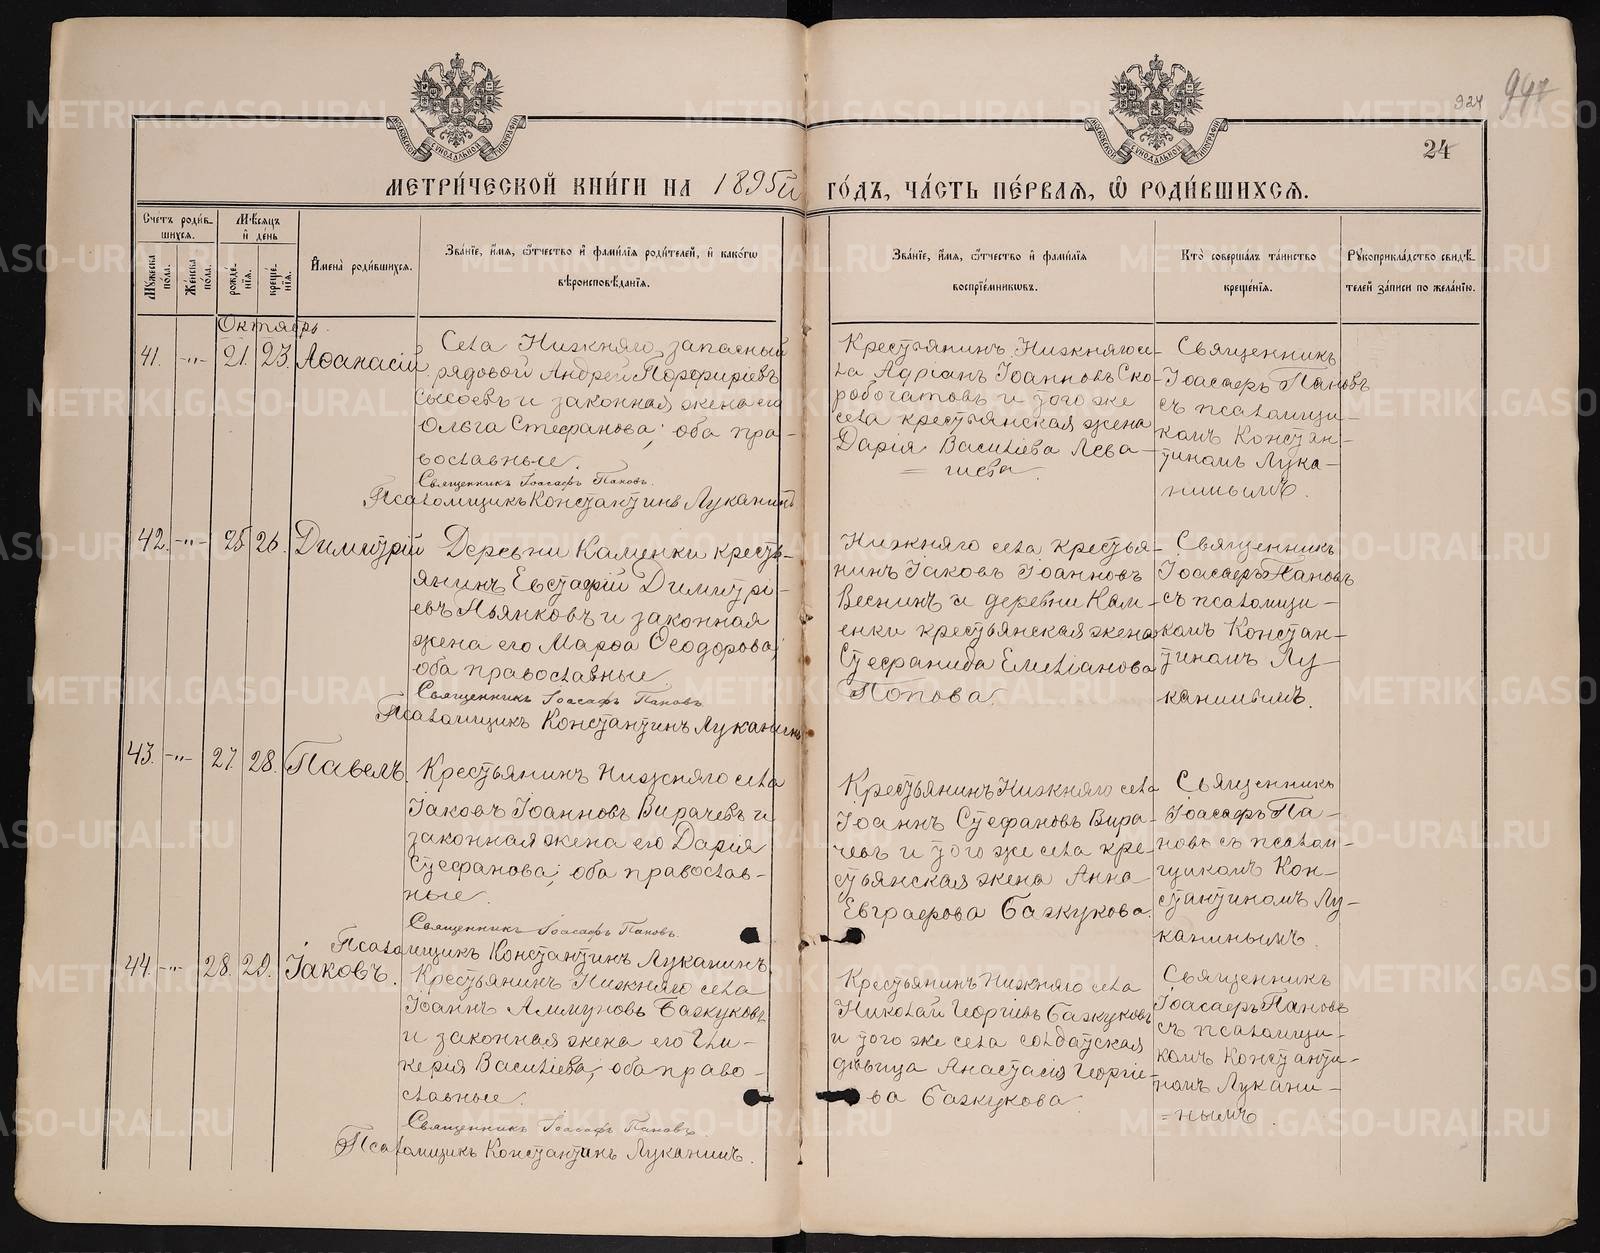 924 947
24
МЕТРИ́ЧЕСКОЙ КНИ́ГИ НА 1895й ГО́ДЪ, ЧА́СТЬ ПЕ́РВАЯ, Ѡ РОДИ́ВШИХСЯ.
Сче́тъ роди́в-
шихся.
Му́жеска по́ла.
Же́нска по́ла.
Мѣ́сяцъ и де́нь
рожде́-
нія.
креще́-
нія.
Имена̀ роди́вшихся.
Зва́ніе, имя, отчество и фами́лія роди́телей, и како́гѡ
вѣроисповѣ́данія.
Зва́ніе, имя, отчество и фами́лія
воспріе́мниковъ.
Кто̀ соверша́лъ та́инство
креще́нія.
Рꙋкоприкла́дство свидѣ́-
телей за́писи по жела́нію.
Октябрь.
41. -"- 21. 23. Аѳанасій
Села Нижняго, запасный
рядовой Андрей Порфиріевъ
Сысоевъ и законная жена его
Ольга Стефанова; оба пра-
вославные.
Священникъ Іоасафъ Пановъ.
Псаломщикъ Константинъ Луканинъ
Крестьянинъ Нижняго се-
ла Адріанъ Іоанновъ Ско-
робогатовъ и того же
села крестьянская жена
Дарія Василіева Лева-
= шева
Священникъ
Іоасафъ Пановъ
съ псаломщи-
комъ Констан-
тиномъ Лука-
нинымъ.
42. -"- 25 26. Димитрій
Деревни Каменки кресть-
янинъ Евстафій Димитрі-
евъ Пьянковъ и законная
жена его Марѳа Ѳеодорова;
оба православные.
Священникъ Іоасафъ Пановъ
Псаломщикъ Константинъ Луканинъ
Нижняго села крестья-
нинъ Іаковъ Іоанновъ
Веснинъ и деревни Кам-
енки крестьянская жена
Стефанида Емеліанова
Попова.
Священникъ
Іоасафъ Пановъ
съ псаломщи-
комъ Констан-
тиномъ Лу-
канинымъ.
43. -"- 27. 28. Павелъ.
Крестьянинъ Нижняго села
Іаковъ Іоанновъ Вирачевъ и
законная жена его Дарія
Стефанова; оба православ-
ные.
Священникъ Іоасафъ Пановъ.
Псаломщикъ Константинъ Луканинъ.
Крестьянинъ Нижняго села
Іоаннъ Стефановъ Вира-
чевъ и того же села кре-
стьянская жена Анна
Евграфова Бажукова.
Священникъ
Іоасафъ Па-
новъ съ псалом-
щикомъ Кон-
стантиномъ Лу-
канинымъ.
44. -"- 28. 29. Іаковъ.
Крестьянинъ Нижняго села
Іоаннъ Бажуковъ
и законная жена его Гли-
керія Василіева; оба право-
славные.
Священникъ Іоасафъ Пановъ.
Псаломщикъ Константинъ Луканинъ.
Крестьянинъ Нижняго села
Николай Георгіевъ Бажуковъ
и того же села солдатская
дѣвица Анастасія Георгіе-
ва Бажукова.
Священникъ
Іоасафъ Пановъ
съ псаломщи-
комъ Константи-
номъ Лукани-
=нымъ.
METRIKI.GASO-URAL.RU